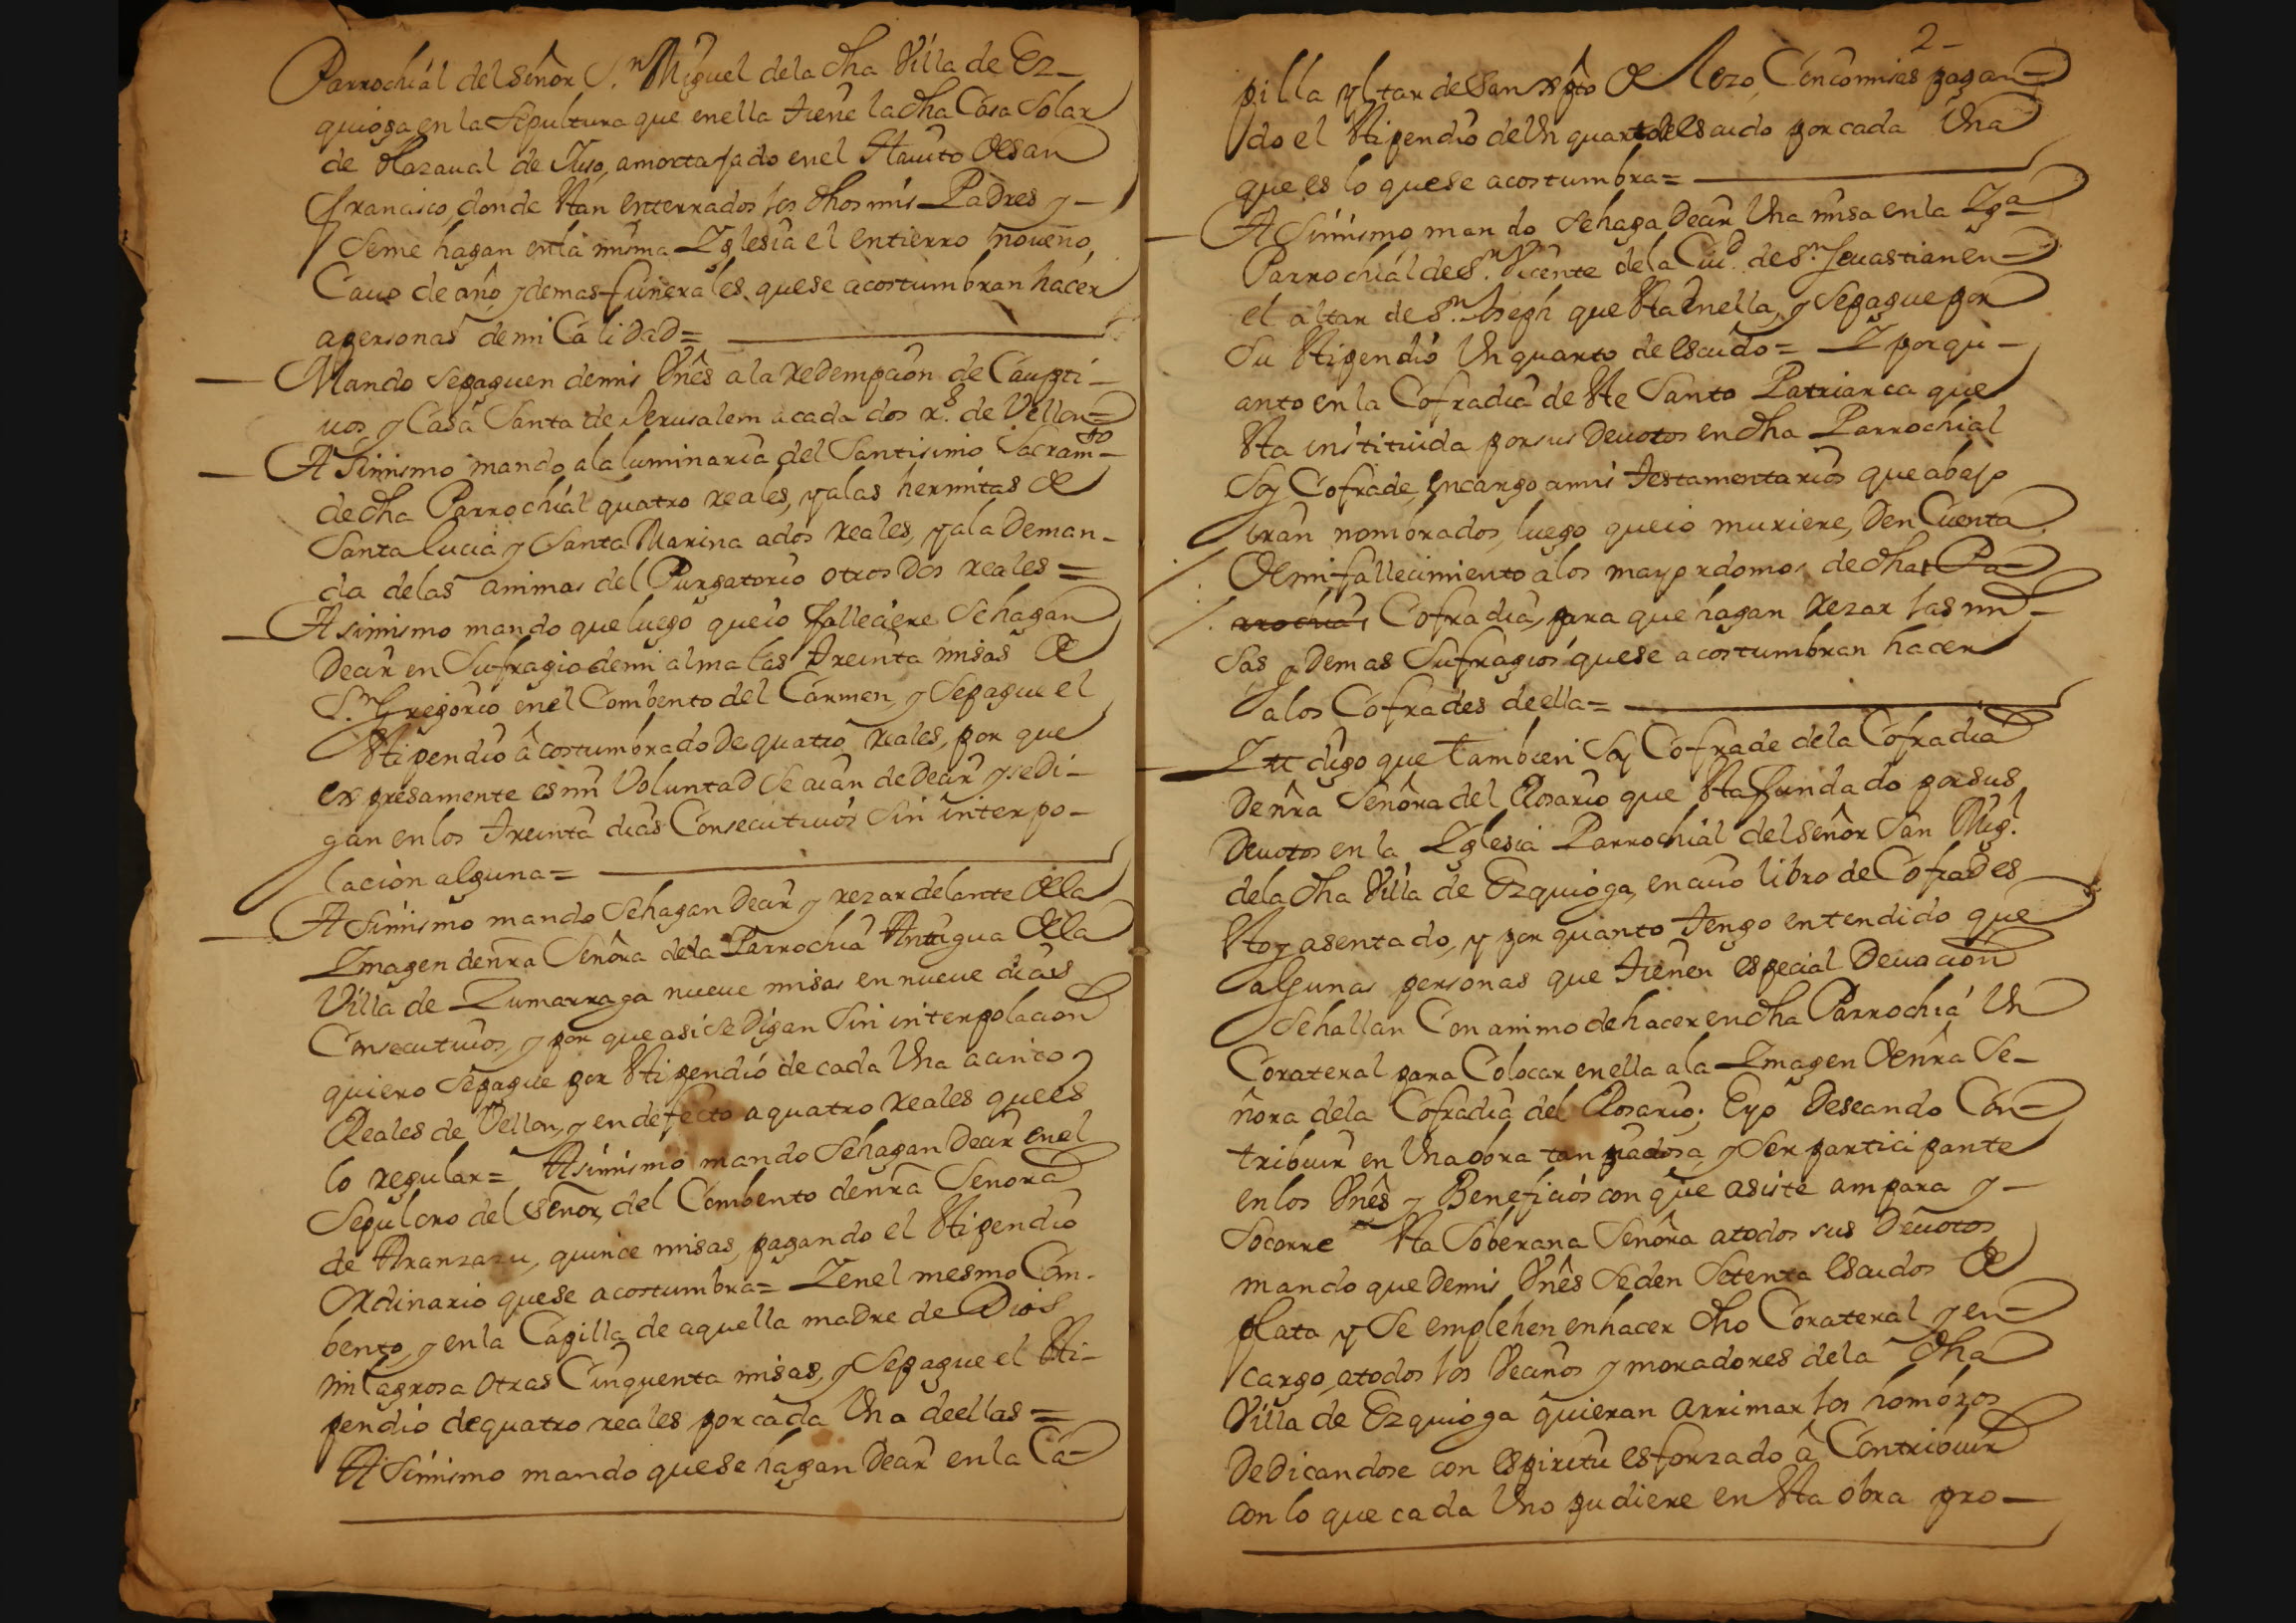 Parrochial del Señor S.n Miguel dela dha Villa de Ez-
quioga en la Sepultura que enella tiene la dha Casa Solar
de Olazaual de Suso, amortajado enel Hauito de San
Francisco donde stan enterrados los dhos mis Padres y-
Seme hagan enla misma Yglesia el entierro noueno,
Cauo de año y demas funerales quese acostumbran hacer
apersonas demi Calidad=
Mando Sepaguen demis Vnês ala redempcion de Caupti-
uos y Casa Santa de Jerusalem a cada dos rs. de Vellon=
Asimismo mando ala luminaria del Santisimo Sacramto
dedha Parrochial quatro reales, y alas hermitas de
Santa Lucia y Santa Marina ados reales, y ala Deman-
da delas animas del Purgatorio otros Dos reales=
Asimismo mando que luego queio falleciere Sehagan
Decir en Sufragio demi alma las treinta misas de
S.n Gregorio enel Combento del Carmen, y Sepague el
stipendio âcostumbrado De quatro reales, por que
expresamente es mi Voluntad Se aian de Decir y seDi-
gan enlos treinta dias Consecutiuos Sin interpo-
lacion alguna=
Asimismo mando Sehagan Decir y rezar delante dela
Ymagen denra Señora dela Parrochia Antigua dela
Villa de Zumarraga nueue misas en nueue dias
Consecutiuos, y por que asi se Digan Sin interpolacion
quiero Sepague por stipendio de cada Vna a cinco
Reales de Vellon, y en defecto a quatro reales quees
lo regular= Asimismo mando Sehagan Decir enel
Sepulcro del Señor, del Combento denra Señora
de Aranzazu, quince misas, pagando el stipendio
Ordinario quese acostumbra= Y enel mesmo Com-
bento, y enla Capilla de aquella madre de Dios
milagrosa otras Cinquenta misas, y Sepague el sti-
pendio de quatro reales por cada Vna deellas=
Asimismo mando quese hagan Decir en la Ca-
2-
pilla yltar de San xpto de Lezo, Cien comisas pagan-
do el stipendio de Vn quarto de Escudo por cada Vna
que es lo quese acostumbra=
Asimismo mando Sehaga Decir Vna misa en la Yga
Parrochial de S.n Vicente dela Ciud. de S.n Seuastian en-
el altar de S.n Joseph que sta enella, y Sepague por
Su stipendio Vn quarto de Escudo= Y por qu-
anto en la Cofradia de ste Santo Patriarca que
sta instituida por sus Deuotos en dha Parrochial
Soy Cofrade, encargo amis testamentarios que abajo
iran nombrados, luego queio muriere, Den Cuenta
de mi fallecimiento alos mayordomos dedha Pa-
rrochia, Cofradia, para que hagan rezar las mi-
Sas y Demas Sufragios quese acostumbran hacer
alos Cofrades deella=
Ytt digo que tambien Soy Cofrade dela Cofradia
De nra Señora del Rosario que sta fundado por sus
Deuotos en la Yglesia Parrochial del Señor San Migl.
dela dha Villa de Ezquioga, en cuio libro de Cofrades
stoy asentado, y por quanto tengo entendido que
algunas personas que tienen especial Deuocion
Sehallan Con animo de hacer en dha Parrochia Vn
Corateral para Colocar enella ala Ymagen de nra Se-
ñora dela Cofradia del Rosario; Eyo Deseando Con-
tribuir en Vna obra tan piadosa, y Ser participante
en los Vnês y Beneficios con que asiste ampara y-
Socorre sta Soberana Señora atodos sus Deuotos
mando que Demis Vnês Seden Setenta Escudos de
plata y Se emplehen enhacer dho Corateral y en-
cargo atodos los Vecinos y moradores dela dha
Villa de Ezquioga quieran arrimar los hombros
Dedicandose con espiritu esforzado â Contribuir
con lo que cada Vno pudiere en sta obra pro-